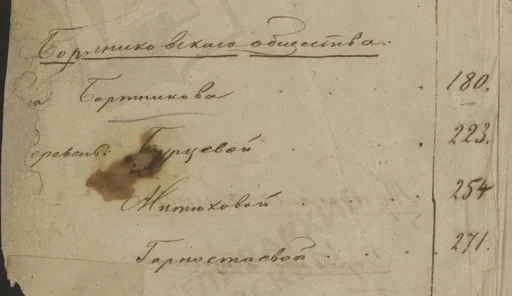 Бортниковского общества:
а Бортникова 180.
еревень: Бурцевой 223.
Житиховой 254
Горностаевой 271.